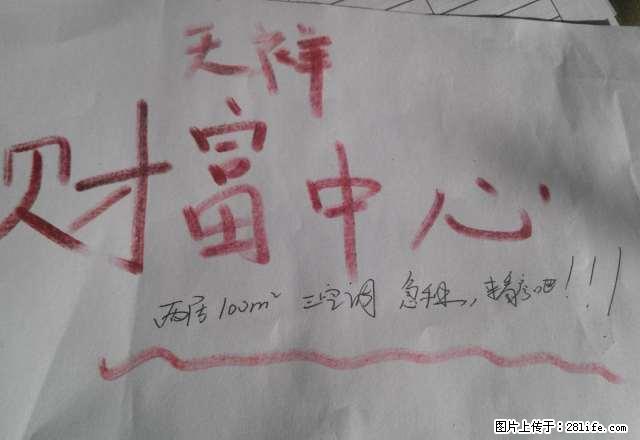 天祥
财富中心
两居100m² 三空调 急租,来看房吧!!!
图片上传于:28life.com